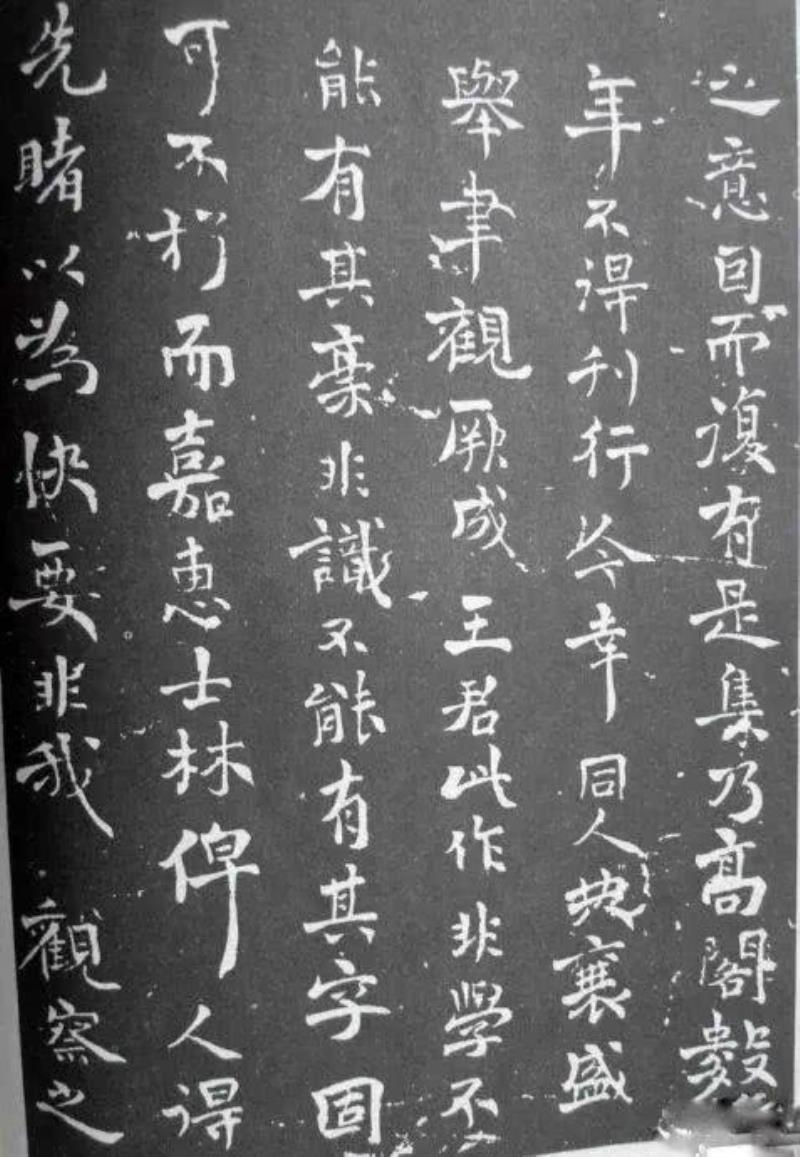 之意因而復有是集乃高閣數
年不得刊行今幸同人共襄盛
舉聿觀厥成王君此作非學不
能有其稾非識不能有其字固
可不朽而嘉惠士林俾人得
先睹以為快要非我觀察之